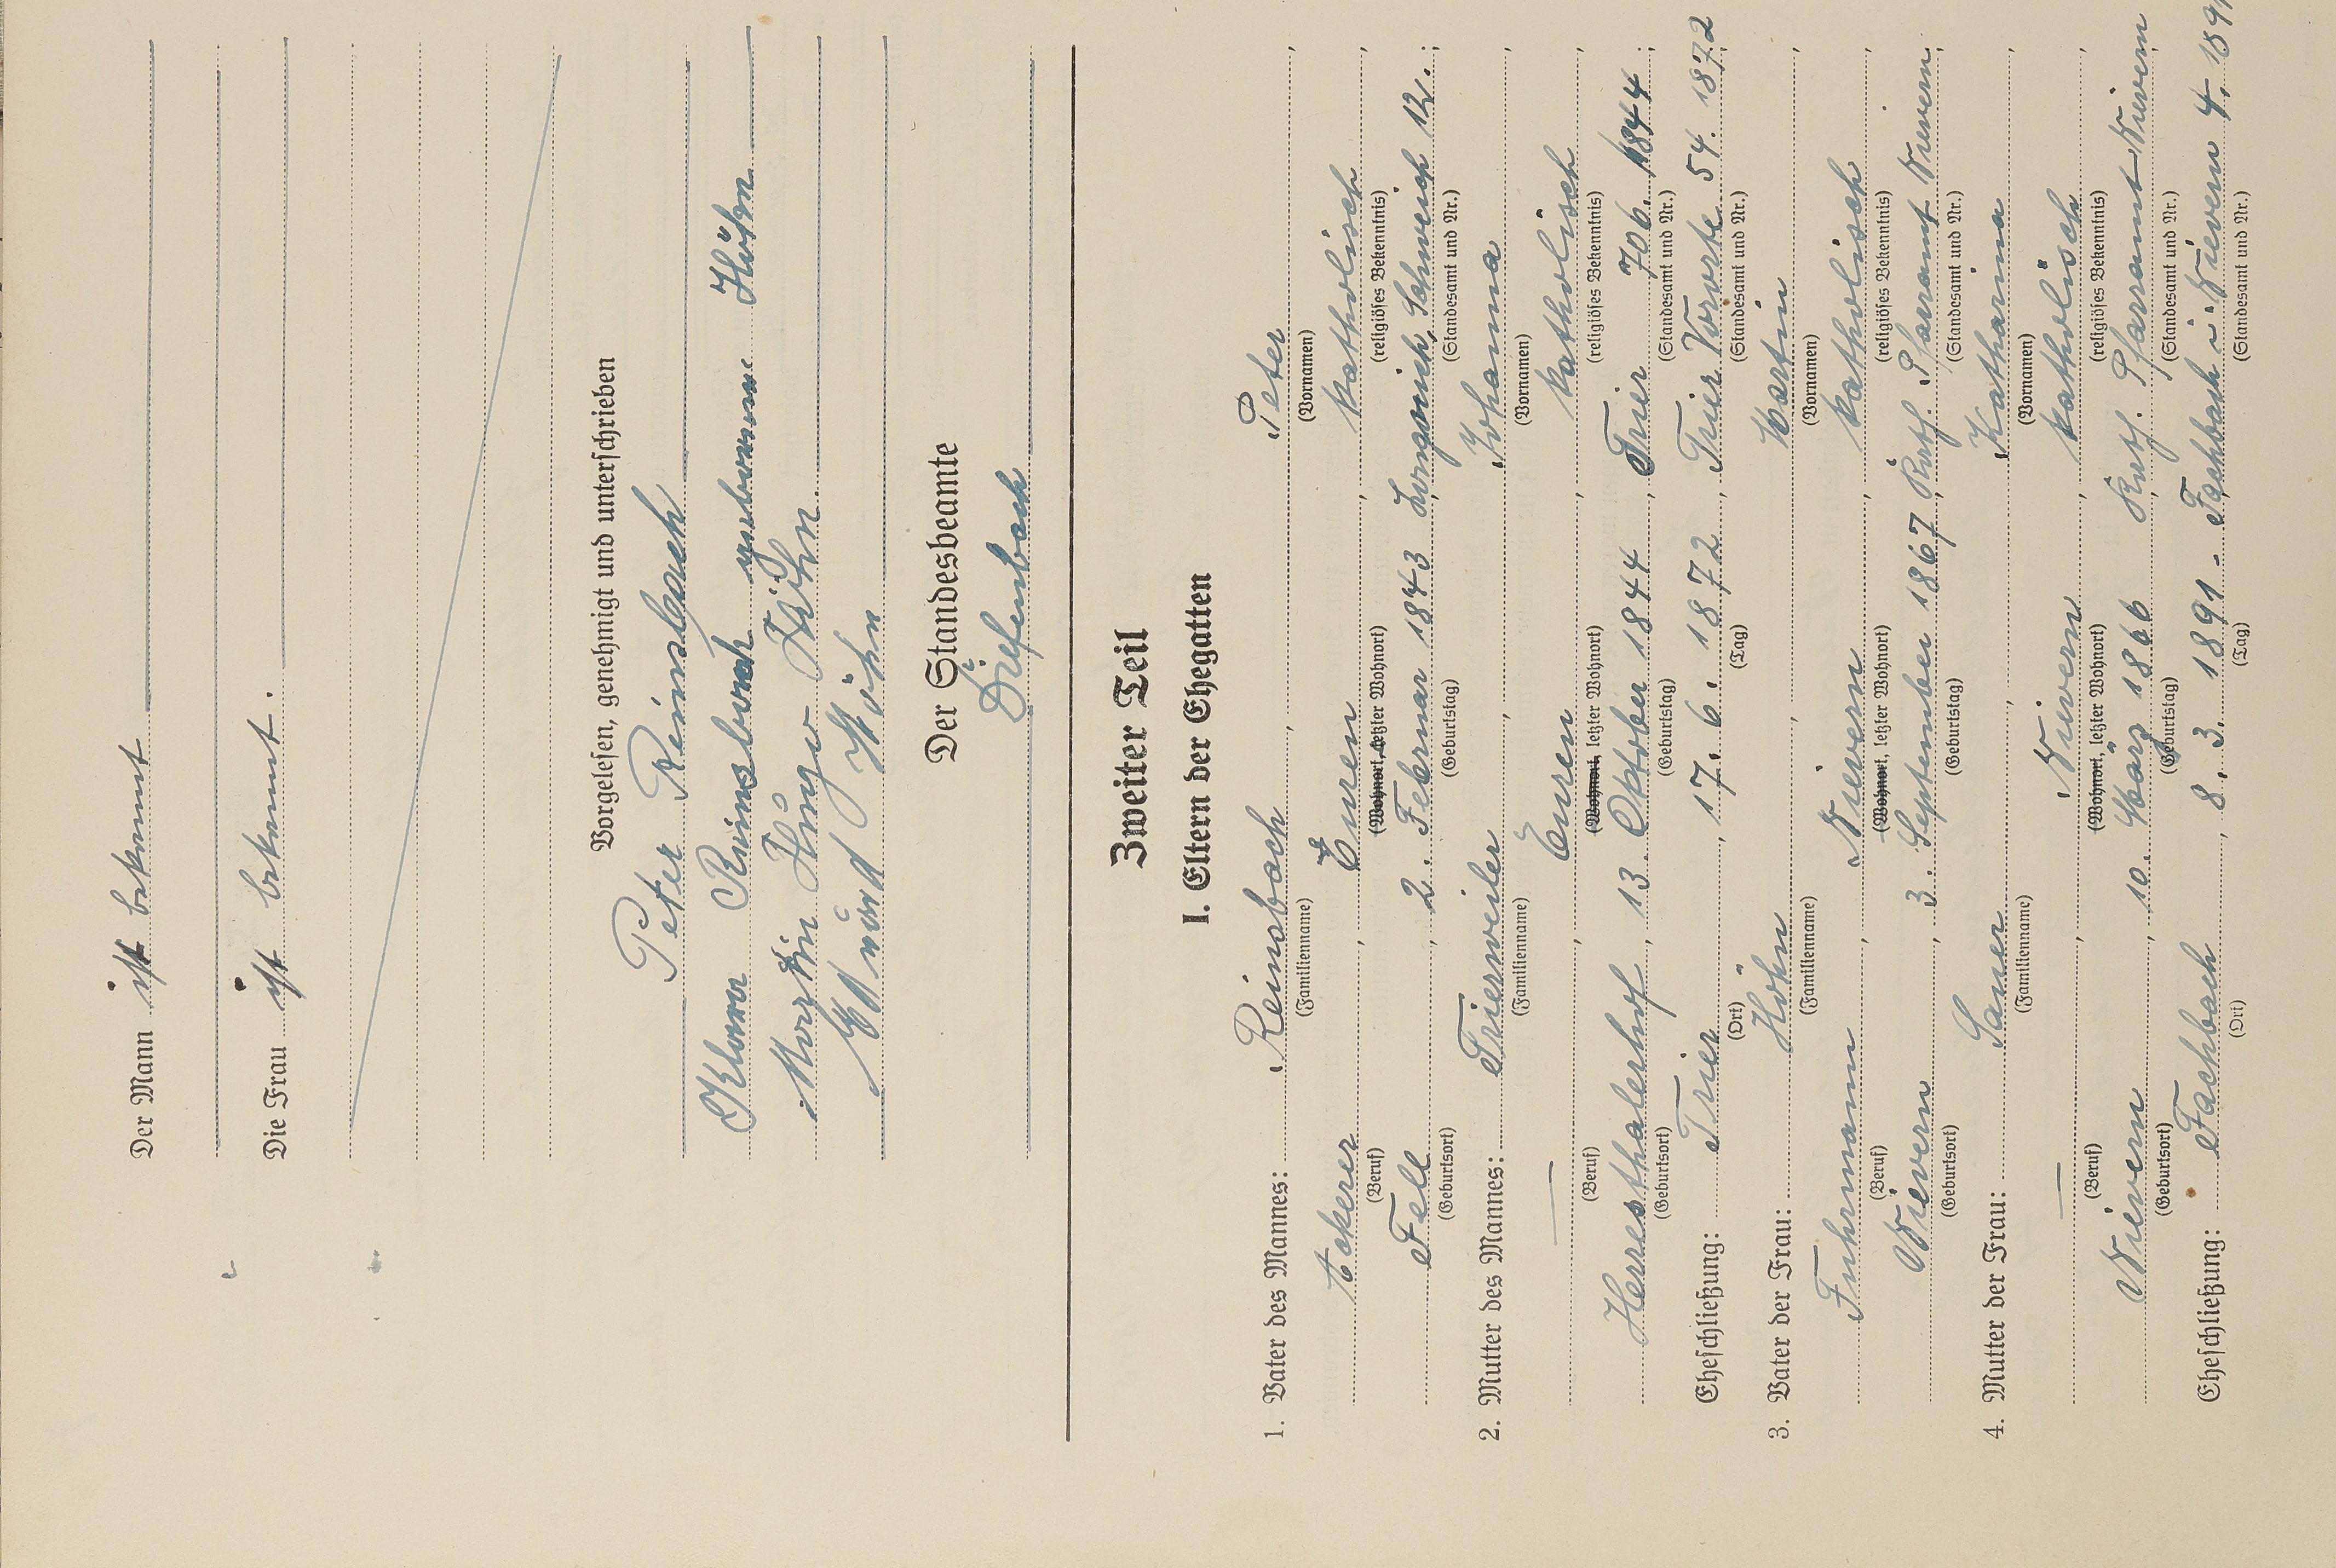 Der Mann ist bekannt
Die Frau ist bekannt.
Vorgelesen, genehmigt und unterschrieben
Peter Reinsbach
Klara Reinsbach geborene Höhn
Martin Hugo Höhn.
Höhn
Der Standesbeamte
Diefenbach
Zweiter Teil
I. Eltern der Ehegatten
1. Vater des Mannes: Reinsbach, Peter,
(Familienname) (Vornamen)
Ackerer, Euren, katholisch,
(Beruf) (Wohnort, letzter Wohnort) (religiöses Bekenntnis)
Fell, 2. Februar 1843, Longuich, Schweich 12.;
(Geburtsort) (Geburtstag) (Standesamt und Nr.)
2. Mutter des Mannes: Trierweiler, Johanna,
(Familienname) (Vornamen)
—, Euren, katholisch,
(Beruf) (Wohnort, letzter Wohnort) (religiöses Bekenntnis)
Herresthalerhof, 13. Oktober 1844, Trier 706. 1844;
(Geburtsort) (Geburtstag) (Standesamt und Nr.)
Eheschließung: Trier, 17. 6. 1872, Trier Vororte 54. 1872
(Ort) (Tag) (Standesamt und Nr.)
3. Vater der Frau: Höhn, Martin,
(Familienname) (Vornamen)
Fuhrmann, Nievern, katholisch,
(Beruf) (Wohnort, letzter Wohnort) (religiöses Bekenntnis)
Nievern, 3. September 1867, Kath. Pfarramt Nievern;
(Geburtsort) (Geburtstag) (Standesamt und Nr.)
4. Mutter der Frau: Sauer, Katharina,
(Familienname) (Vornamen)
—, Nievern, katholisch,
(Beruf) (Wohnort, letzter Wohnort) (religiöses Bekenntnis)
Nievern, 10. März 1866, Kath. Pfarramt Nievern
(Geburtsort) (Geburtstag) (Standesamt und Nr.)
Eheschließung: Fachbach, 8. 3. 1891. Fachbach i. Nievern 4.
(Ort) (Tag) (Standesamt und Nr.)